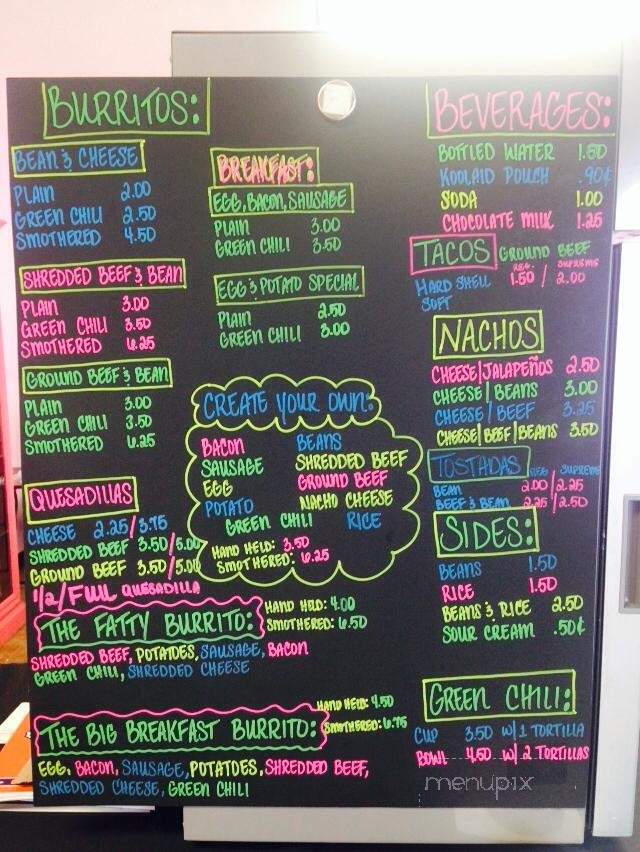 BURRITOS:
BEAN & CHEESE
PLAIN 2.00
GREEN CHILI 2.50
SMOTHERED 4.50
SHREDDED BEEF & BEAN
PLAIN 3.00
GREEN CHILI 3.50
SMOTHERED 6.25
GROUND BEEF & BEAN
PLAIN 3.00
GREEN CHILI 3.50
SMOTHERED 6.25
QUESADILLAS
CHEESE 2.25/3.75
SHREDDED BEEF 3.50/5.00
GROUND BEEF 3.50/5.00
1/2/FULL QUESADILLA
BREAKFAST:
EGG, BACON, SAUSAGE
PLAIN 3.00
GREEN CHILI 3.50
EGG & POTATO SPECIAL
PLAIN 2.50
GREEN CHILI 3.00
CREATE YOUR OWN:
BACON BEANS
SAUSAGE SHREDDED BEEF
EGG GROUND BEEF
POTATO NACHO CHEESE
GREEN CHILI RICE
HAND HELD: 3.50
SMOTHERED: 6.25
THE FATTY BURRITO:
HAND HELD: 4.00
SMOTHERED: 6.50
SHREDDED BEEF, POTATOES, SAUSAGE, BACON
GREEN CHILI, SHREDDED CHEESE
THE BIG BREAKFAST BURRITO:
HAND HELD: 4.50
SMOTHERED: 6.75
EGG, BACON, SAUSAGE, POTATOES, SHREDDED BEEF,
SHREDDED CHEESE, GREEN CHILI
BEVERAGES:
BOTTLED WATER 1.50
KOOLAID POUCH .90¢
SODA 1.00
CHOCOLATE MILK 1.25
TACOS GROUND BEEF
REG. SUPREME
HARD SHELL 1.50 / 2.00
SOFT
NACHOS
CHEESE/JALAPEÑOS 2.50
CHEESE/BEANS 3.00
CHEESE/BEEF 3.25
CHEESE/BEEF/BEANS 3.50
TOSTADAS REG SUPREME
BEAN 2.00/2.25
BEEF & BEAN 2.25/2.50
SIDES:
BEANS 1.50
RICE 1.50
BEANS & RICE 2.50
SOUR CREAM .50¢
GREEN CHILI:
CUP 3.50 W/ 1 TORTILLA
BOWL 4.50 W/ 2 TORTILLAS
menupix